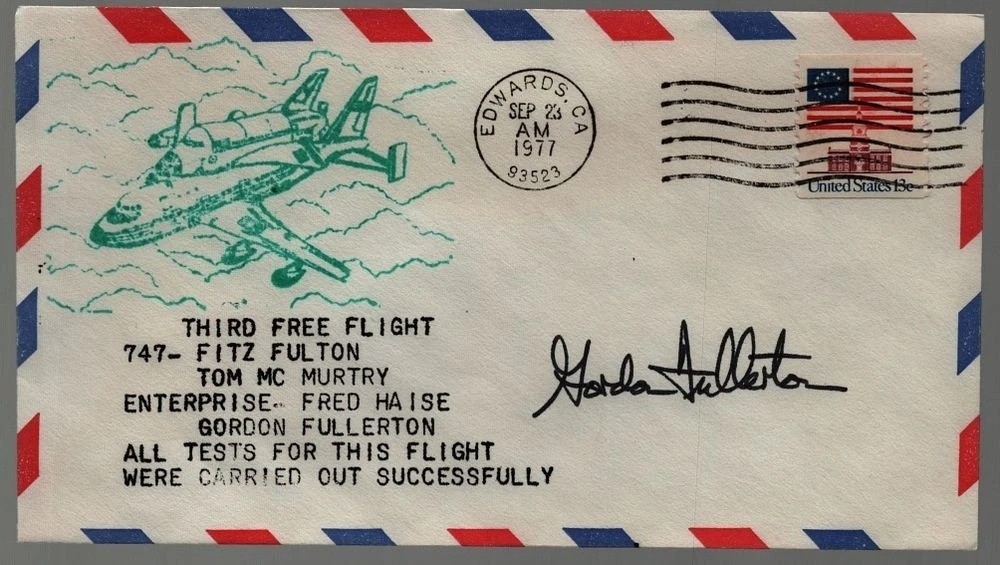 EDWARDS, CA
SEP 23
AM
1977
93523
United States 13c
THIRD FREE FLIGHT
747- FITZ FULTON
TOM MC MURTRY
ENTERPRISE- FRED HAISE
GORDON FULLERTON
ALL TESTS FOR THIS FLIGHT
WERE CARRIED OUT SUCCESSFULLY
Gordon Fullerton